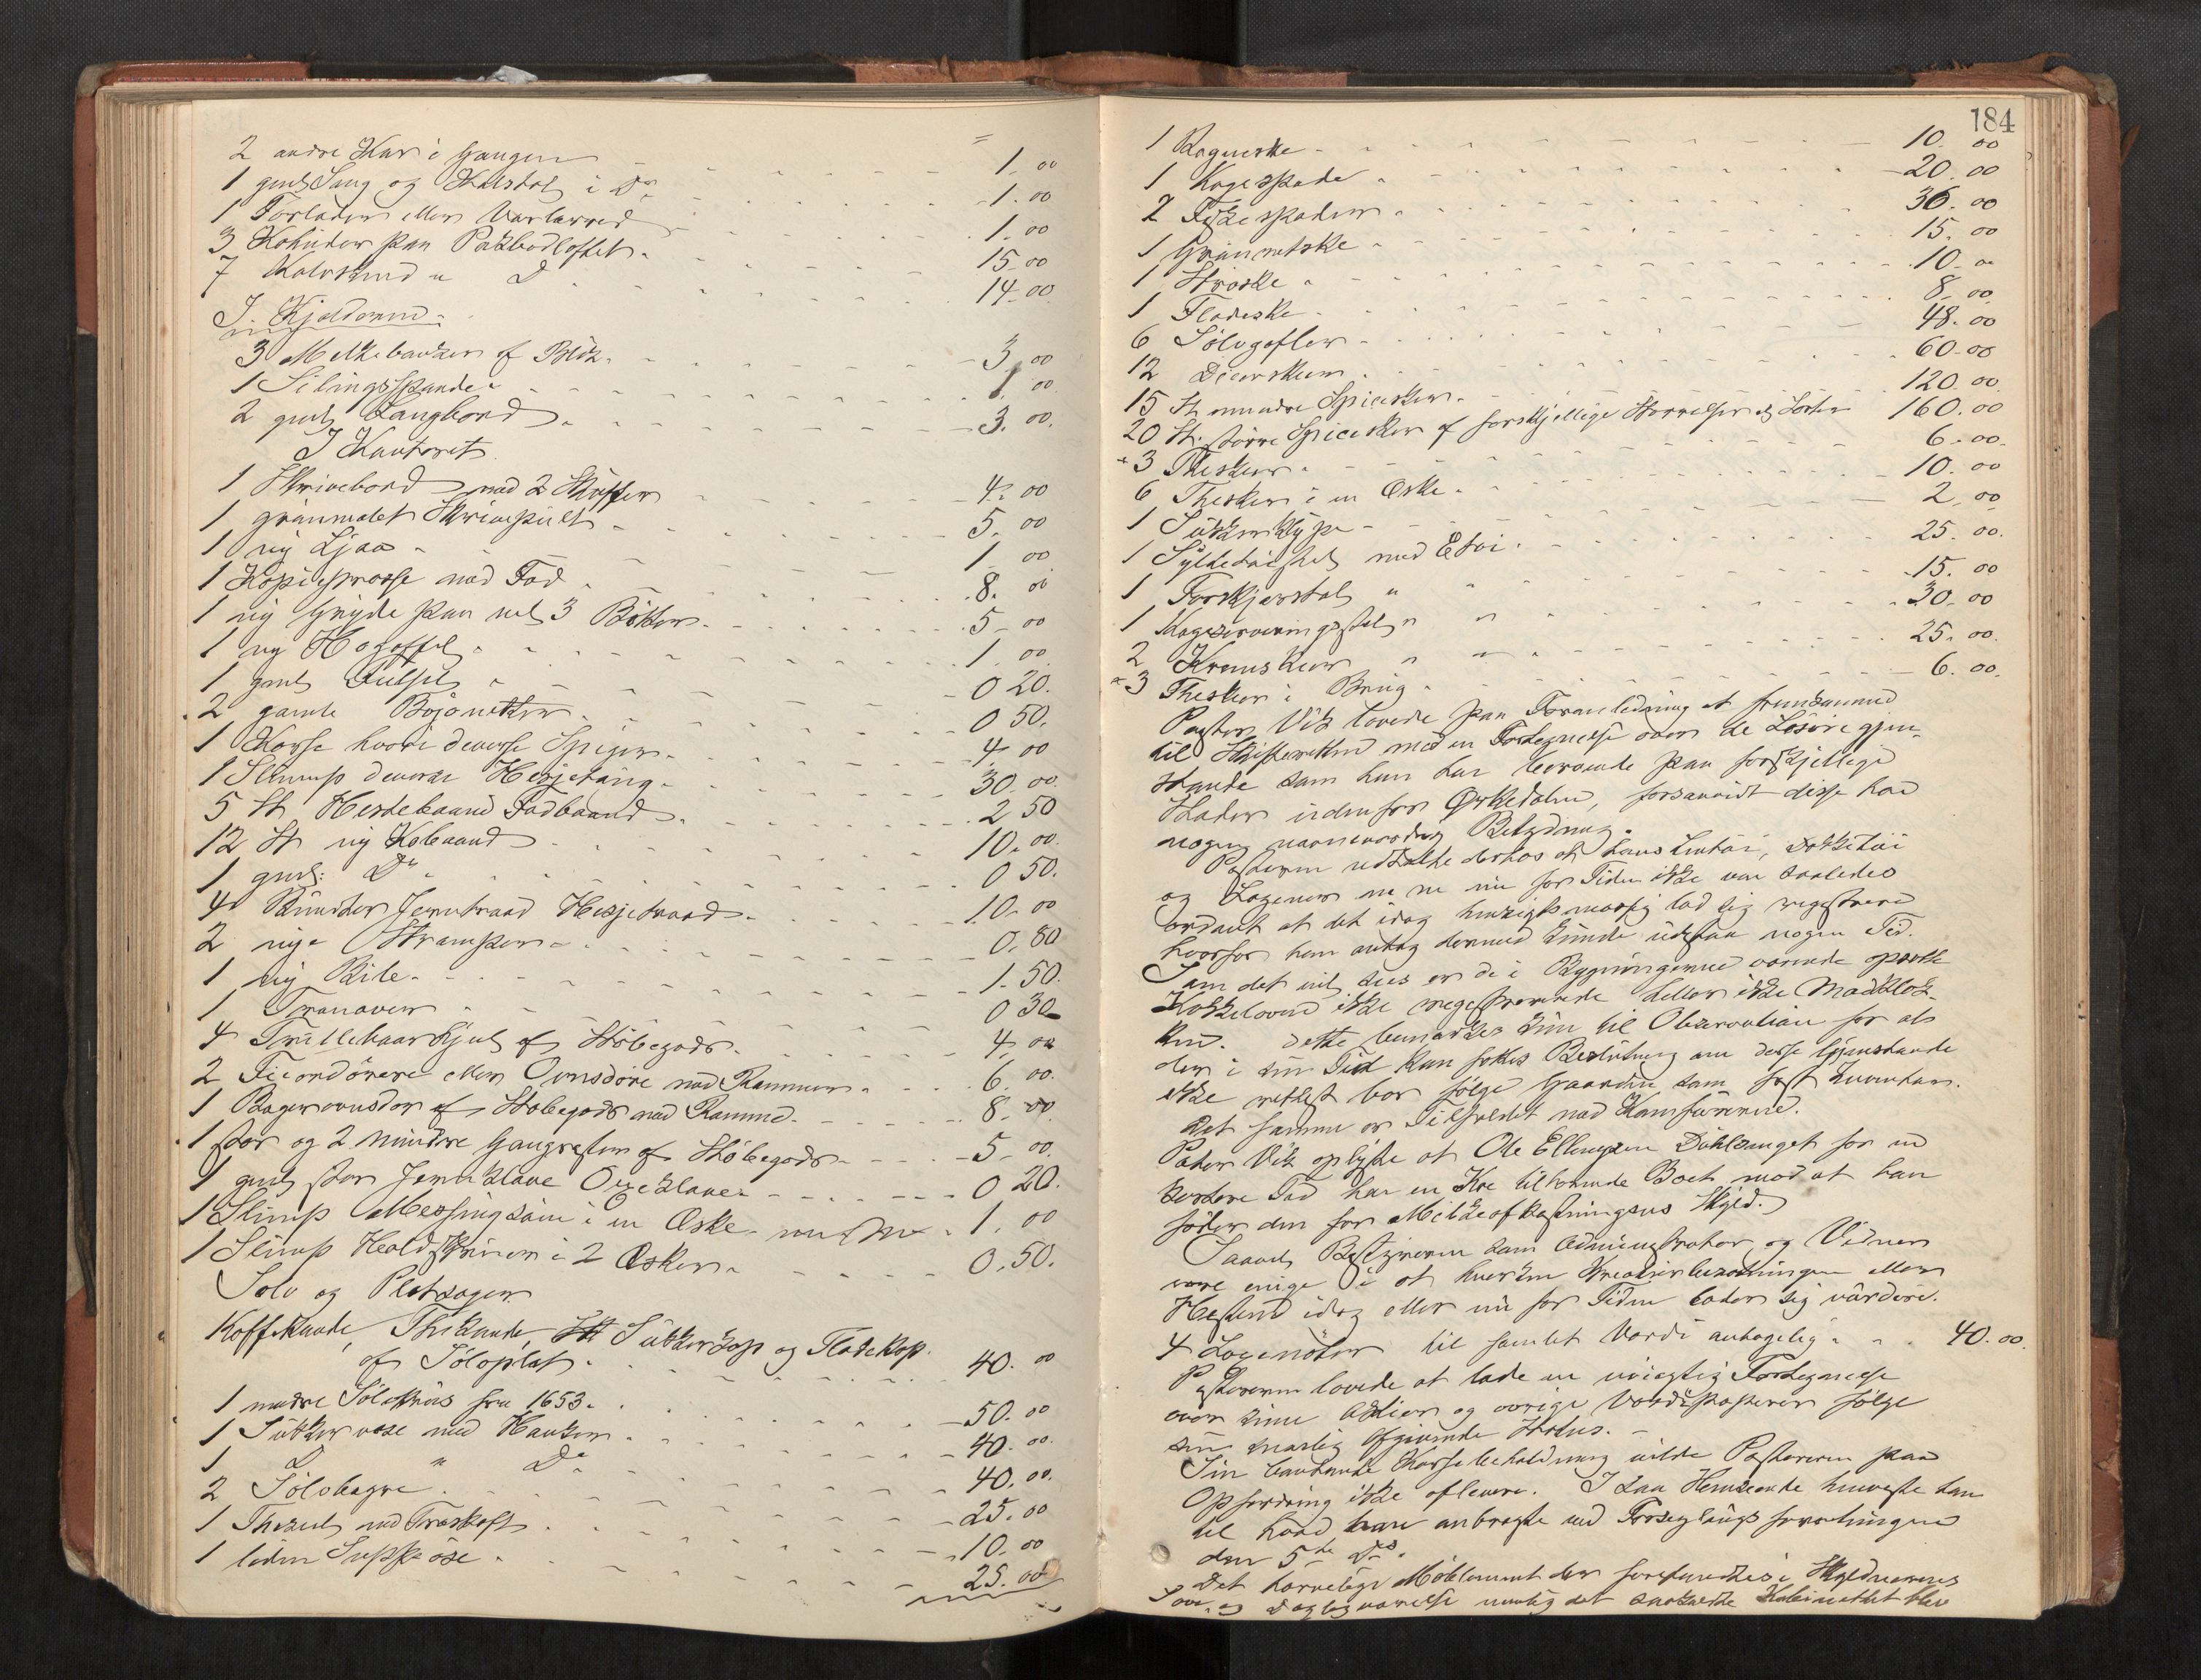 2 andre Kar i Gangen - - - 1.00
1 gml Saug og i Do - - - 1.00
1 Forlader eller - - - 1.00
3 Kohuder paa Pakbodloftet - - - 15.00
7 Kalvskind " D - - - 14.00
I Kjelderen
3 Melkebøtter af Blik - - - 3.00
1 Silingsspand - - - 1.00
2 gml Langbord - - - 3.00.
I Kontoret
1 Skrivebord med 2 Skuffer - - - 4.00
1 grønmalet Skrivepult - - - 5.00
1 ny Ljaa - - - 1.00
1 Kopiepresse med Fod - - - 8.00
1 ny Gryde paa vel 3 Bøtter - - - 5.00
1 ny Høgaffel - - - 1.00
1 gml - - - 0 20.
2 gamle Bajonetter - - - 0 50.
1 Kasse hvori diverse Spiger - - - 4.00
1 Slump diverse Hesjetøug - - - 30.00
5 St Hestebaand Fadbaand - - - 2 50
12 St ny Kobaand - - - 10.00
1 gml: Do - - - 0 50.
4 Bundter Jerntraad Hesjetraad - - - 10.00
2 nye - - - 0.80
1 ny Bile - - - 1.50.
1 - - - 0 30
4 Trillebaarhjul af Støbegods - - - 4.00
2 eller Ovnsdøre med Rammer - - - 6.00.
1 Bagerovnsdør af Støbegods med Ramme - - - 8.00.
1 stor og 2 mindre af Støbegods - - - 5.00.
1 gml stor Jernklave Oxeklave - - - 0 20.
1 Slump Messingsøm i en Æske - 1.00
1 Slump i 2 Æsker - - - 0.50.
Sølv og Pletsager
Kaffekande, Thekande, Sukkerkop og Flødekop
af Sølvplet - - - 40.00
1 mindre Sølvkrus fra 1653 - - - 50.00
1 Sukkervase med Hanker - - - 40.00.
1 D " Do - - - 40.00.
2 Sølvbægre - - - 25.00
1 Thesil med Træskaft - - - 10.00
1 liden Suppeøse - - - 25.00
184
1 Ragueske - - - 10.00
1 Kagespade - - - 20.00
2 Fiskespader - - - 36.00
1 Grønnetske - - - 15.00
1 Strøske - - - 10.00
1 Flødeske - - - 8.00
6 Sølvgafler - - - 48.00
12 - - - 60.00
15 St mindre Spiseskeer - - - 120.00.
20 St. større Spiseskeer af forskjellige Størrelser og Sorter 160.00
3 Theskeer - - - 6.00.
6 Theskeer i en Æske - - - 10.00
1 Sukkerklype - - - 2.00
1 med Etui - - - 25.00.
1 Forskjærstøl " " - - - 15.00
1 " " - - - 30.00
2 " " - - - 25.00.
3 Theskeer i Brug - - - 6.00.
Pastor Vik lovede paa Foranledning at fremkomme
til Skifteretten med en Fortegnelse over de Løsøregjen-
stande som han har beroende paa forskjellige
Steder udenfor Ørkedalen, forsaavidt disse har
nogen nævneværdig Betydning.
Pastoren udtalte derhos at hans Lintøi, Dækketøi
og Lagener m m nu for Tiden ikke var saaledes
ordnet at det idag hensigtsmæssig lod sig registrere
hvorfor han antog dermed kunde udstaa nogen Tid.
Som det vil sees er de i Bygningerne værende opsatte
Kakkelovne ikke registrerede heller ikke Madklok-
ken. Dette bemærkes kun til Observation for at
der i sin Tid kan fattes Beslutning om disse Gjenstande
ikke rettest bør følge Gaarden som fast Inventar.
Det samme er Tilfældet med Komfurerne.
Pastor Vik oplyste at Ole Ellingsen for en
kortere Tid har en Ko tilhørende Boet mod at han
føder den for Melkeafkastningens Skyld.
Saavel Bestyreren som Administrator og Vidner
vare enige i at hverken Kreaturbesætningen eller
Hestene idag eller nu for Tiden lader sig vurdere.
4 til samlet Værdi antagelig - - 40.00.
Pastoren lovede at lade en nøiagtig Fortegnelse
over sine Aktier og øvrige Værdipapirer følge
sin snarlig afgivende Status. -
Sin kontante Kassebeholdning vilde Pastoren paa
Opfordring ikke aflevere. I saa Henseende henviste han
til hvad han anbragte ved Forseglingsforretningen
den 5te Ds.
Det Møblement der forefandtes i
Sove og Dagligværelse nemlig det saakaldte Kabinettet blev